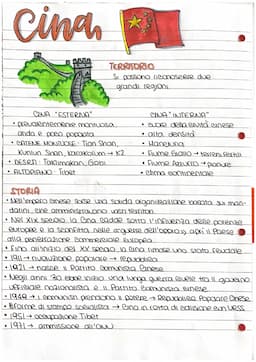 Cina
TERRITORIO
Si possono riconoscere due
grandi regioni.
CINA "ESTERNA"
• prevalentemente montuosa,
arida e poco popolata
• CATENE MONTUOSE: Tian Shan,
Kunlun Shan, Karakorum → K2
• DESERTI: Taklimakan, Gobi
• ALTOPIANO: Tibet
CINA "INTERNA"
• cuore della civiltà cinese
• alta densità
• Manciuria
• Fiume Giallo → terreni fertili
• Fiume Azzurro → pianure
• clima continentale
STORIA
• Nell'impero cinese sorse una solida organizzazione basata sui man-
darini, che amministravano vasti territori
• Nel XIX secolo la Cina cadde sotto l'influenza delle potenze
europee e la sconfitta nelle guerre dell'oppio aprì il Paese
alla penetrazione commerciale europea
• Fino all'inizio del XX secolo la Cina rimase uno stato feudale
• 1911 → rivoluzione popolare → repubblica
• 1921 → nasce il Partito Comunista Cinese
• Negli anni '30 ebbe inizio una lunga guerra civile tra il governo
ufficiale nazionalista e il Partito Comunista Cinese
• 1949 → i comunisti prendono il potere → Repubblica Popolare Cinese
• Riforme di stampo socialista → Cina in rotta di collisione con URSS
• 1951 → occupazione Tibet
• 1971 → ammissione all'ONU